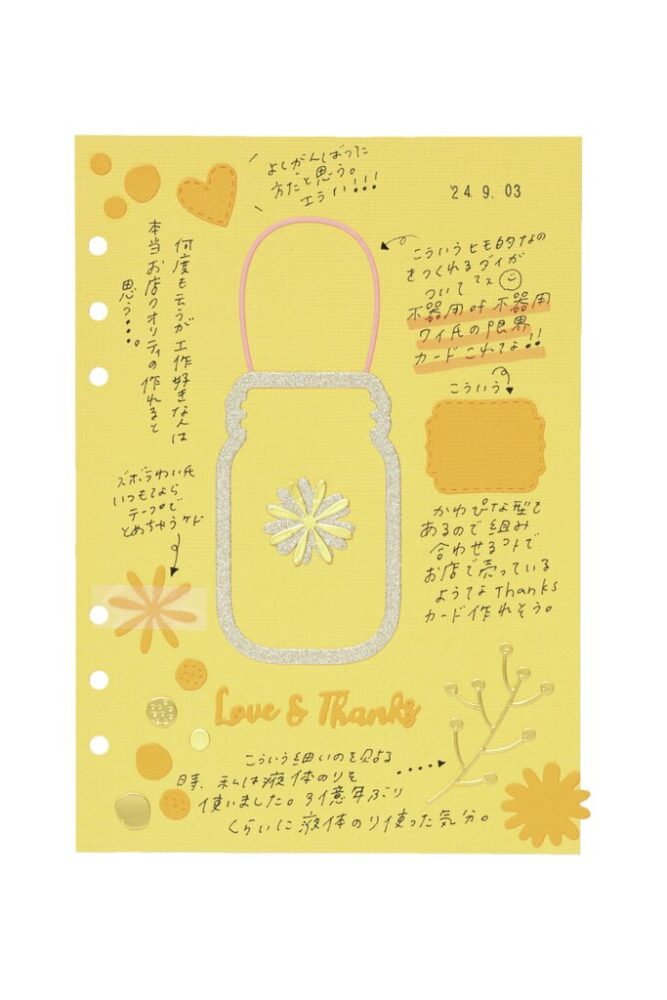 よしがんばった
方だと思う。
エライ!!!
'24. 9. 03
何度も云うが工作好きな人は
本当お店クオリティの作れると
思う・・・。
こういうヒモ的なの
をつくれるダイが
ついてマス
不器用of不器用
ワイ氏の限界
カードこれな!!
こういう
かわぴな型も
あるので組み
合わせるコトで
お店で売っている
ような Thanks
カード作れそう。
ズボラわい氏
いつもなら
テープで
とめちゃうケド
Love & Thanks
こういう細いのを貼る
時、私は液体のりを
使いました。3億年ぶり
くらいに液体のり使った気分。